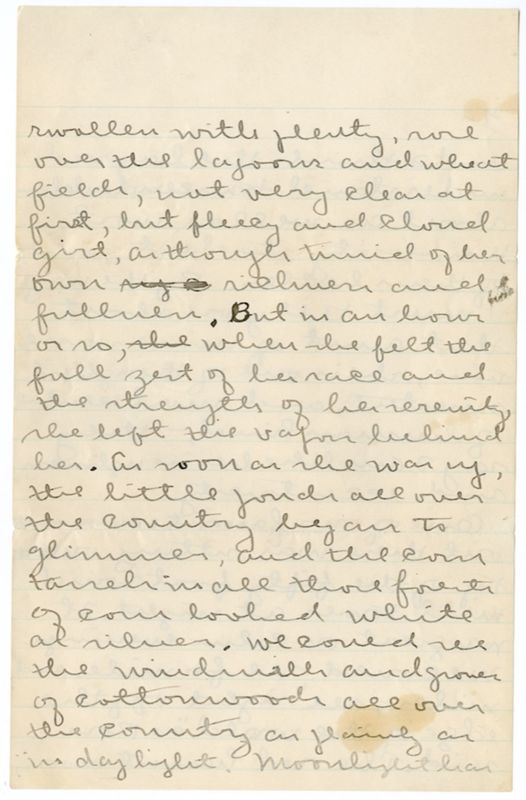 swollen with plenty, rose
over the lagoons and wheat
fields, not very clear at
first, but fleecy and cloud
girt, as though timid of her
own richness and
fullness. But in an hour
or so, she when she felt the
full zest of her race and
the strength of her serenity,
she left the vapor behind
her. As soon as she was up,
the little ponds all over
the country began to
glimmer, and the corn
tassels in all those forests
of corn looked white
as silver. We could see
the windmills and groves
of cottonwoods all over
the country as plainly as
in daylight. Moonlight has